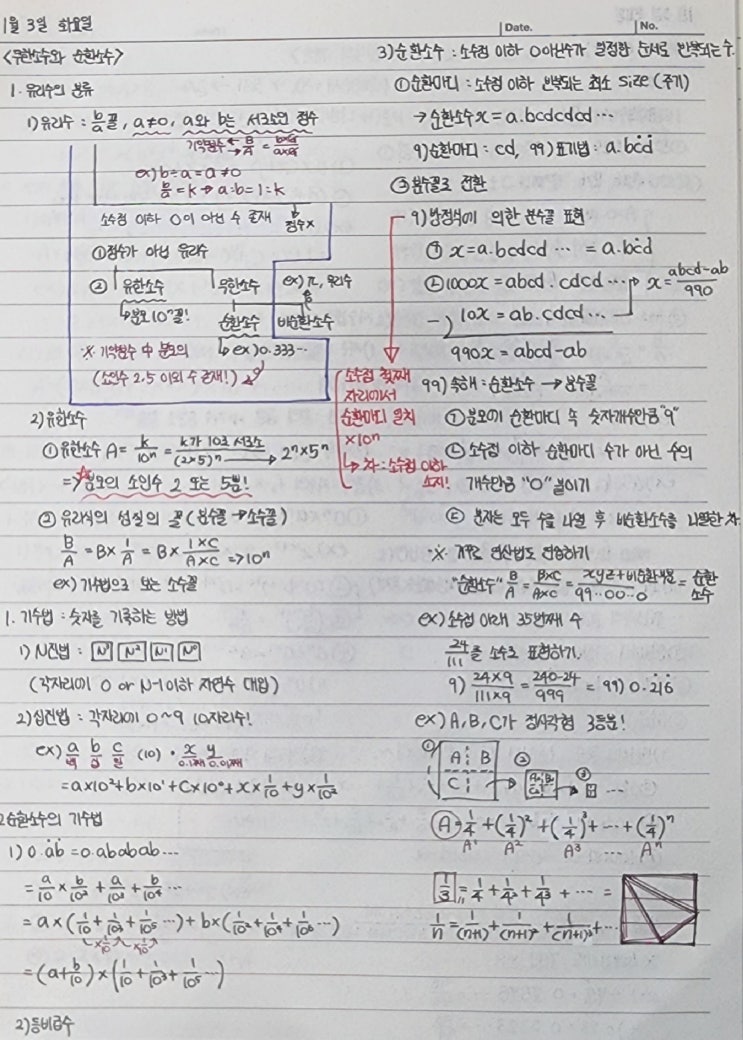 1월 3일 화요일
Date. No.
<무한소수와 순환소수>
1. 유리수의 분류
1) 유리수 : b/a 꼴, a≠0, a와 b는 서로소인 정수
기약분수 ← B/A = b×G/a×G
ex) b÷a = a≠0
b/a = k → a:b = 1:k
소수점 이하 0이 아닌 수 존재 → 정수×
① 정수가 아닌 유리수
② 유한소수 무한소수 ex) π, 무리수
↳ 분모 10ⁿ꼴! 순환소수 비순환소수
※ 기약분수 中 분모의 ↳ ex) 0.333…
(소인수 2.5 이외 수 존재!)
2) 유한소수
① 유한소수 A = k/10ⁿ = k가 10과 서로소/(2×5)ⁿ → 2ⁿ×5ⁿ
⇒ ☆ 분모의 소인수 2 또는 5뿐!
② 유리식의 성질의 꼴 (분수꼴→소수꼴)
B/A = B× 1/A = B× 1×C/A×C ⇒ 10ⁿ
ex) 기수법으로 보는 소수꼴
1. 기수법 : 숫자를 기록하는 방법
1) N진법 : N³ N² N¹ N⁰
(각자리에 0 or N-1이하 자연수 대입)
2) 십진법 : 각자리에 0~9 10자리수!
ex) a b c (10) . x y
백 십 일 0.1째 0.01째
= a×10²+b×10¹+c×10⁰+x×1/10+y×1/10²
2. 순환소수의 기수법
1) 0.ȧḃ = 0.ababab…
= a/10 + b/10² + a/10³ + b/10⁴ …
= a×(1/10+1/10³+1/10⁵ …)+b×(1/10²+1/10⁴+1/10⁶ …)
= (a+b/10)×(1/10+1/10³+1/10⁵ …)
2) 등비급수
3) 순환소수 : 소수점 이하 0아닌수가 일정한 순서로 반복되는 수.
① 순환마디 : 소수점 이하 반복되는 최소 size (주기)
→ 순환소수 x = a.bcdcdcd…
ㄱ) 순환마디 : cd, ㄱㄱ) 표기법 : a.bċḋ
③ 분수꼴로 전환
ㄱ) 방정식에 의한 분수꼴 표현
㉠ x = a.bcdcd … = a.bċḋ
㉡ 1000x = abcd.cdcd… → x = abcd-ab/990
-) 10x = ab.cdcd…
990x = abcd-ab
소수점 첫째
자리에서
순환마디 일치
×10ⁿ
↳ 차 : 소수점 이하
소거!
ㄱㄱ) 속해 : 순환소수 → 분수꼴
㉠ 분모에 순환마디 속 숫자개수만큼 "9"
㉡ 소수점 이하 순환마디 수가 아닌 수의
개수만큼 "0" 붙이기
㉢ 분자는 모두 수를 나열 후 비순환소수를 나열한 차.
※ 거꾸로 연산법도 적용하기
"순환소수" B/A = B×C/A×C = xyz+비순환/99…00…0 = 순환소수
ex) 소수점 아래 35번째 수
24/111 를 소수로 표현하기.
ㄱ) 24×9/111×9 = 240-24/999 = ㄱㄱ) 0.2̇16̇
ex) A, B, C가 정사각형 3등분!
① A B C ② A B C ③ …
Ⓐ = 1/4+(1/4)²+(1/4)³+…+(1/4)ⁿ
A¹ A² A³ … Aⁿ
1/3 = 1/4+1/4²+1/4³+… =
1/n = 1/(n+1)+1/(n+1)²+1/(n+1)³+…